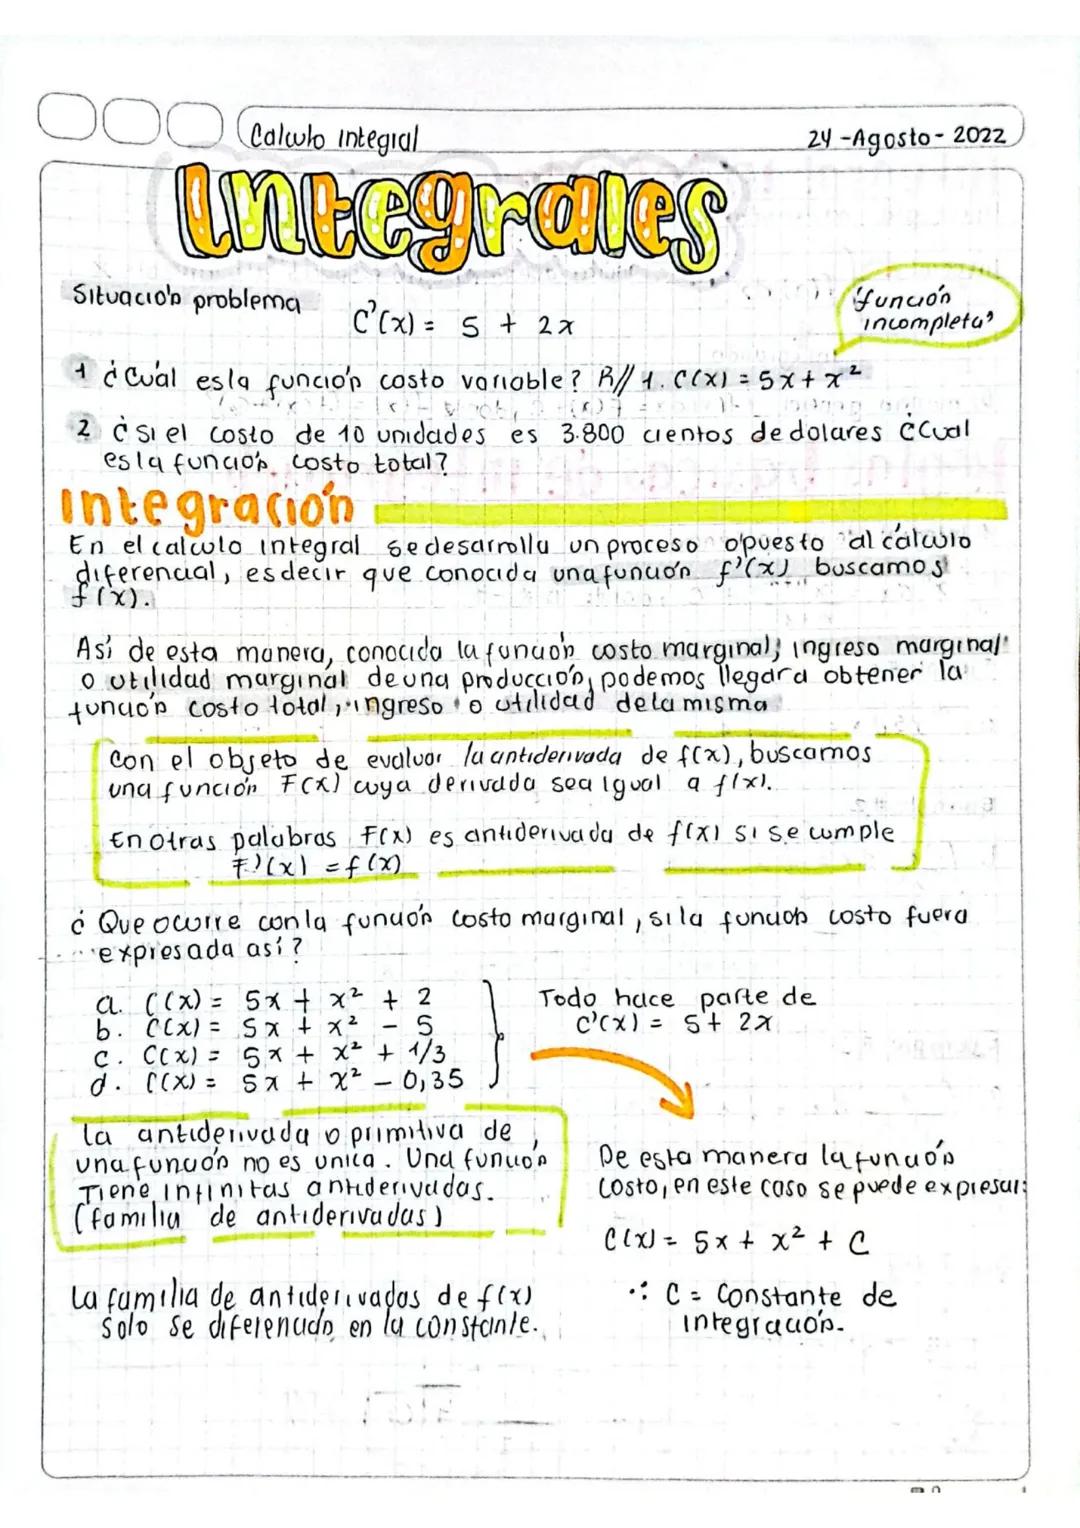 Calculo Integral
24 -Agosto- 2022
Integrales
Situación problema
"función
incompleta"
C'(x) = 5 + 2x
1 ¿Cuál es la función costo variable? R// 1. C(x) = 5x + x²
2 ¿Si el costo de 10 unidades es 3.800 cientos de dolares ¿Cual
es la función costo total?
Integración
En el calculo integral se desarrolla un proceso opuesto al cálculo
diferencial, es decir que conocida una función f'(x) buscamos
f(x).
Así de esta manera, conocida la función costo marginal; ingreso marginal
o utilidad marginal de una producción, podemos llegar a obtener la
función costo total, ingreso o utilidad de la misma
Con el objeto de evaluar la antiderivada de f(x), buscamos
una función F(x) cuya derivada sea igual a f(x).
En otras palabras F(x) es antiderivada de f(x) si se cumple
F'(x) = f(x)
¿Que ocurre con la función costo marginal, si la función costo fuera
expresada así?
a. C(x) = 5x + x² + 2
b. C(x) = 5x + x² - 5
c. C(x) = 5x + x² + 1/3
d. C(x) = 5x + x² - 0,35
Todo hace parte de
C'(x) = 5 + 2x
La antiderivada o primitiva de
una función no es unica. Una función
Tiene infinitas antiderivadas.
(familia de antiderivadas)
De esta manera la función
costo, en este caso se puede expresar:
C(x) = 5x + x² + C
∴ C = Constante de
integración.
La familia de antiderivadas de f(x)
solo se diferencian en la constante.